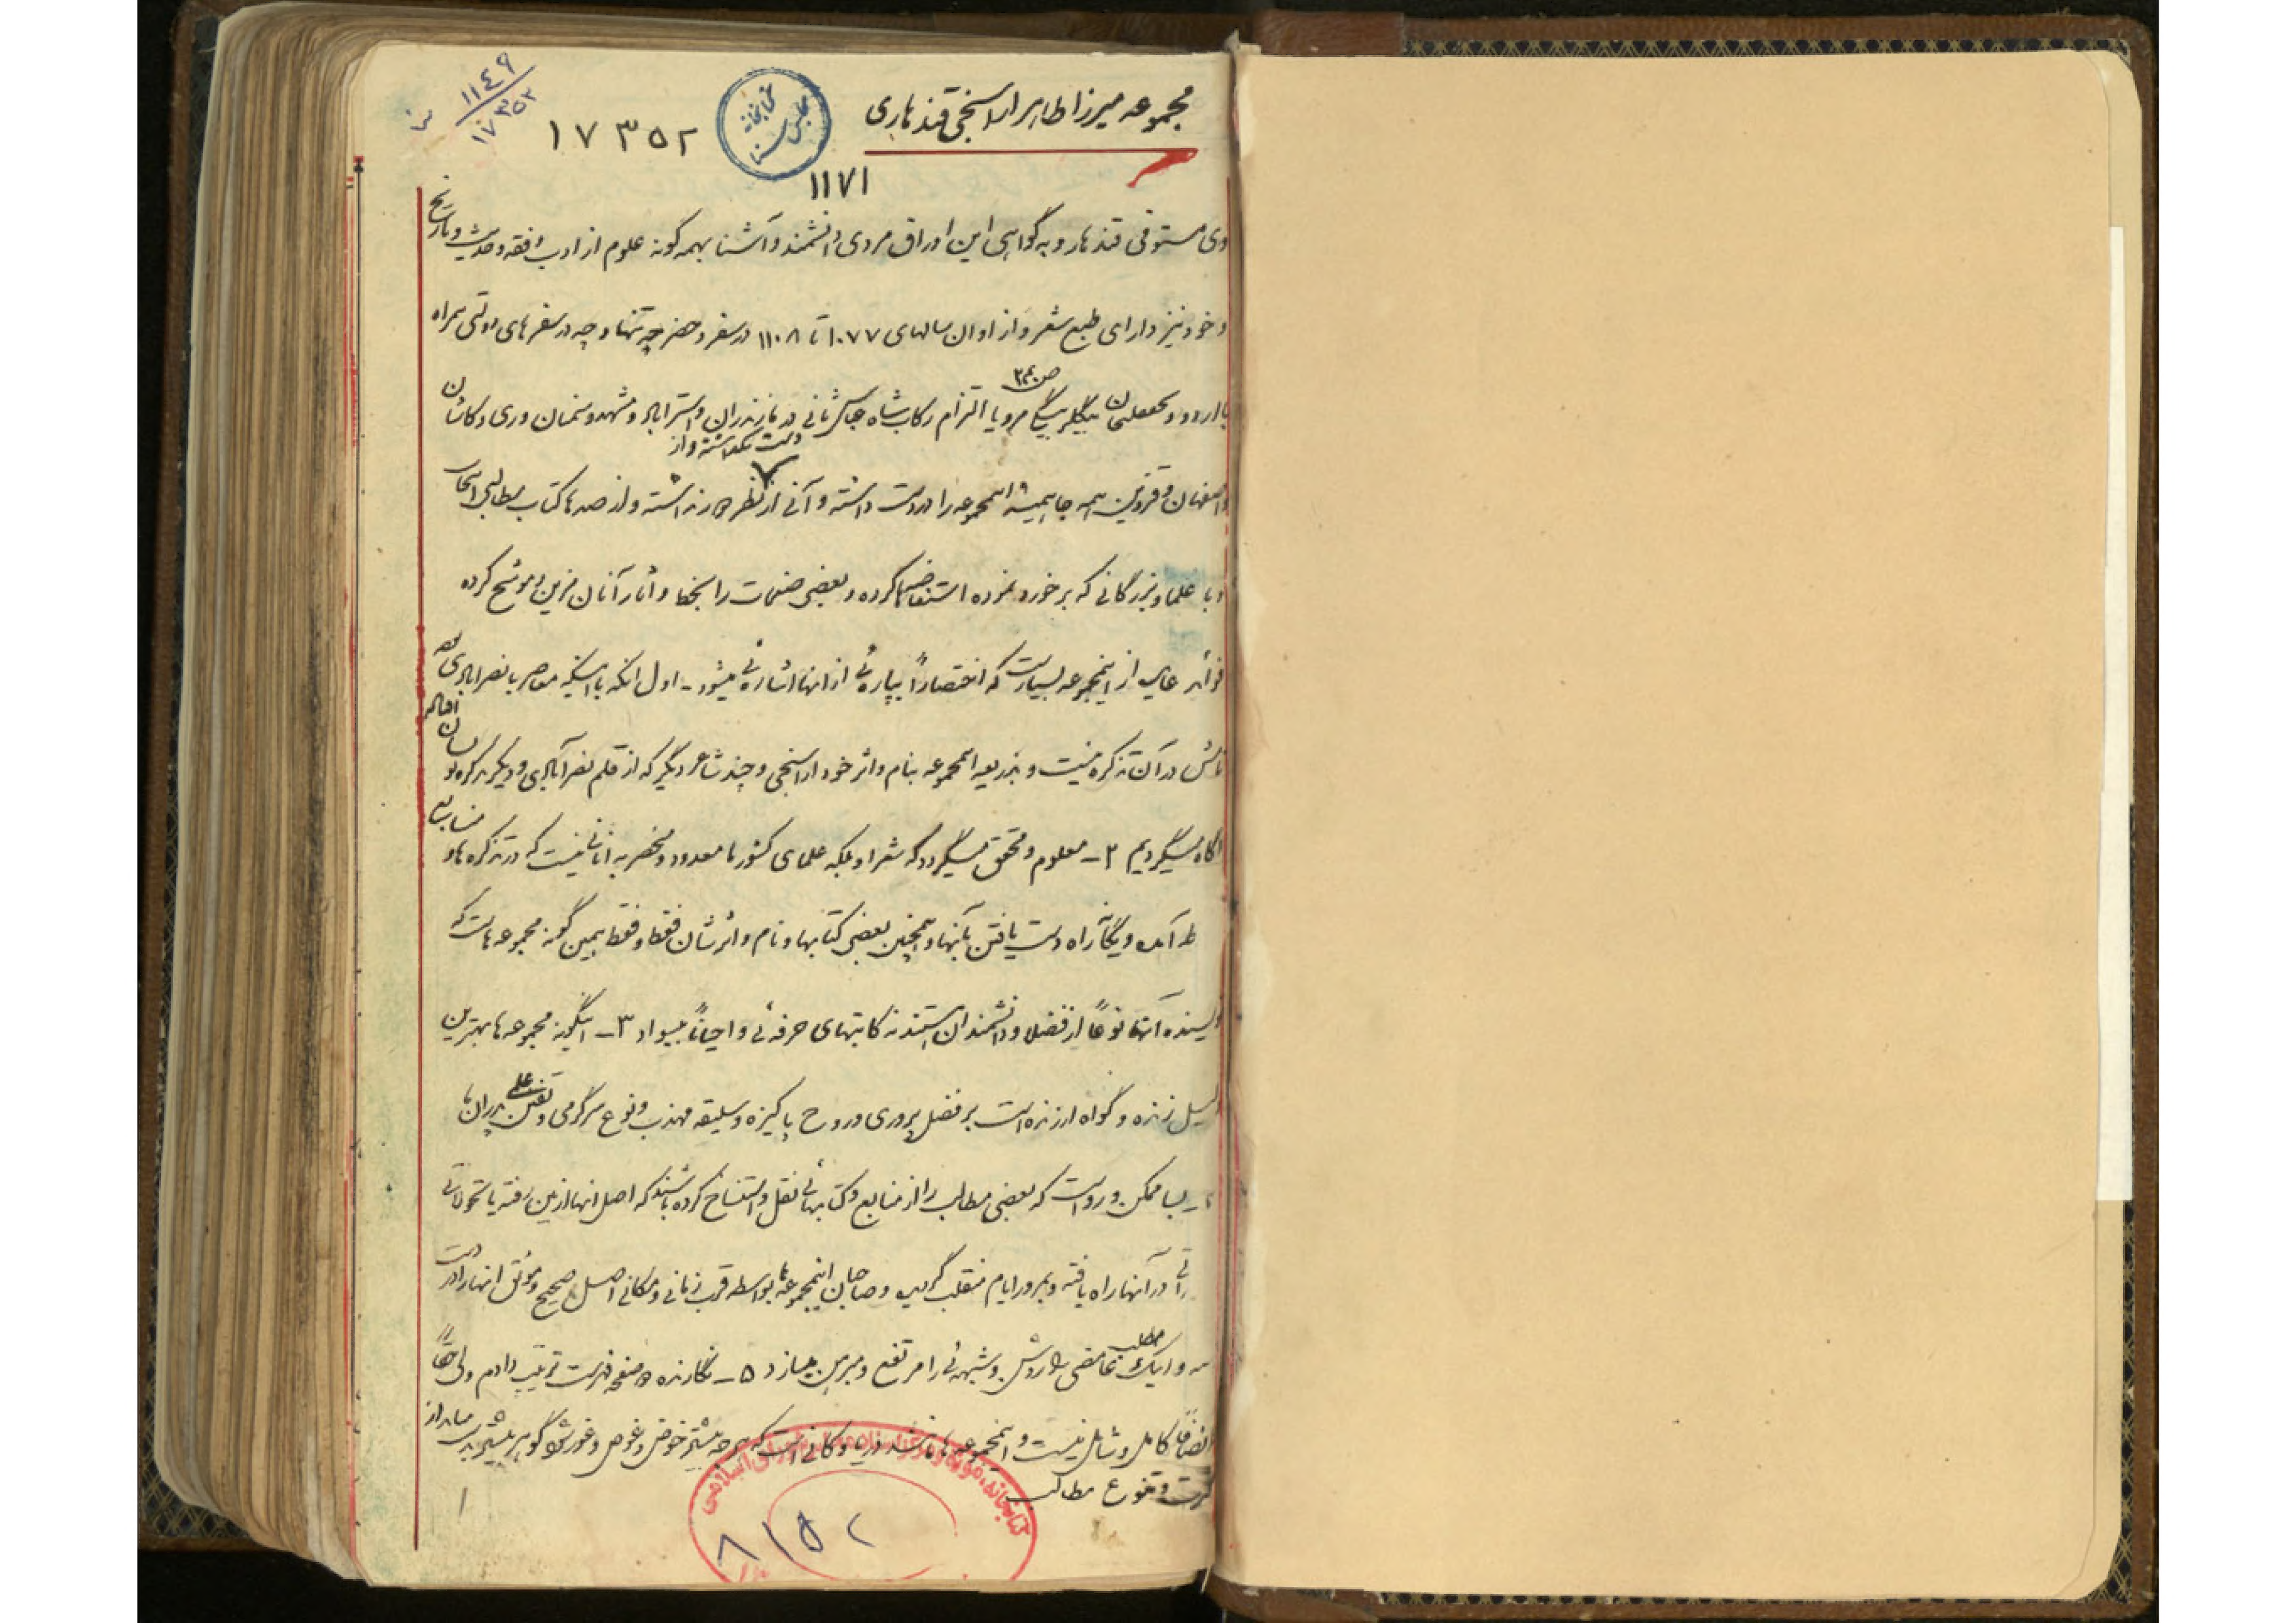 مجموعه میرزا طاهر اراسنجی قندهاری
کتابخانه مجلس سنا
۱۷۳۵۲
۱۱۴۹
۱۷۳۵۲
۱۱۷۱
وی مستوفی قندهار و به گواهی این اوراق مردی دانشمند و آشنا بهمه گونه علوم از ادب و فقه و حدیث و تاریخ
و خود نیز دارای طبع شعر و از اوان سالهای ۱۰۷۷ تا ۱۱۰۸ در سفر و حضر چه تنها و چه در سفرهای دولتی همراه
با اردو بیگلربیگی مرو یا التزام رکاب شاه عباس ثانی در مازندران و استراباد و مشهد و سمنان و ری و کاشان
و اصفهان و قزوین همه جا همیشه اینمجموعه را در دست داشته و آنی از نظر دور نداشته و از صدها کتاب مطالبی انتخاب
دست نگذاشته و از
و با علما و بزرگانی که برخورد نموده استفاضه‌ها کرده و بعضی صفحات را بخط و آثار آنان مزین و موشح کرده
فوائد عایده از اینمجموعه بسیار است که اختصاراً بپاره‌ئی از انها اشاره‌ئی میشود - اول انکه با اینکه معاصر با نصرابادی
نامش در آن تذکره نیست و بذریعه اینمجموعه بنام و اثر خود اراسنجی و چند شاعر دیگر که از قلم نصرآبادی و دیگر تذکره نویسان افتاده
آگاه میگردیم ۲ - معلوم و محقق میگردد که شعرا و بلکه علمای کشور ما معدود و منحصر به آنانی نیست که در تذکره‌ها و
آمده و یگانه راه دست یافتن بآنها و همچنین بعضی کتابها و نام و اثرشان فقط و فقط همین گونه مجموعه‌هاست که
نویسنده آنها نوعاً از فضلا و دانشمندان هستند نه کاتبهای حرفه‌ئی و احیاناً بیسواد ۳ - اینگونه مجموعه‌ها بهترین
دلیل زنده و گواه ارزنده است بر فضل پروری و روح پاکیزه و سلیقه مهذب و نوع سرگرمی و تفنن علمی پدران ما
۴ - بسا ممکن و رواست که بعضی مطالب را از منابع و کتابهائی نقل و استنساخ کرده باشند که اصل انها از بین رفته یا تحولاتی
در آنها راه یافته و بمرور ایام منقلب گردیده و صاحبان اینمجموعه‌ها بواسطه قرب زمانی و مکانی اصل صحیح و موثق انها را در دست
و اینک مطلب غامضی را روشن و شبهه‌ئی را مرتفع و مبرهن میسازد ۵ - نگارنده صفحه فهرست ترتیب دادم ولی حقاً
و انصافاً کامل و شامل نیست و اینمجموعه‌ها مانند دریا و کانی است که هر چه بیشتر خوض و غوص و غور شود گوهر بیشتر بدست میدهد از
کثرت و تنوع مطالب
۱
کتابخانه، موزه و مرکز اسناد مجلس شورای اسلامی
۸۱۵۲